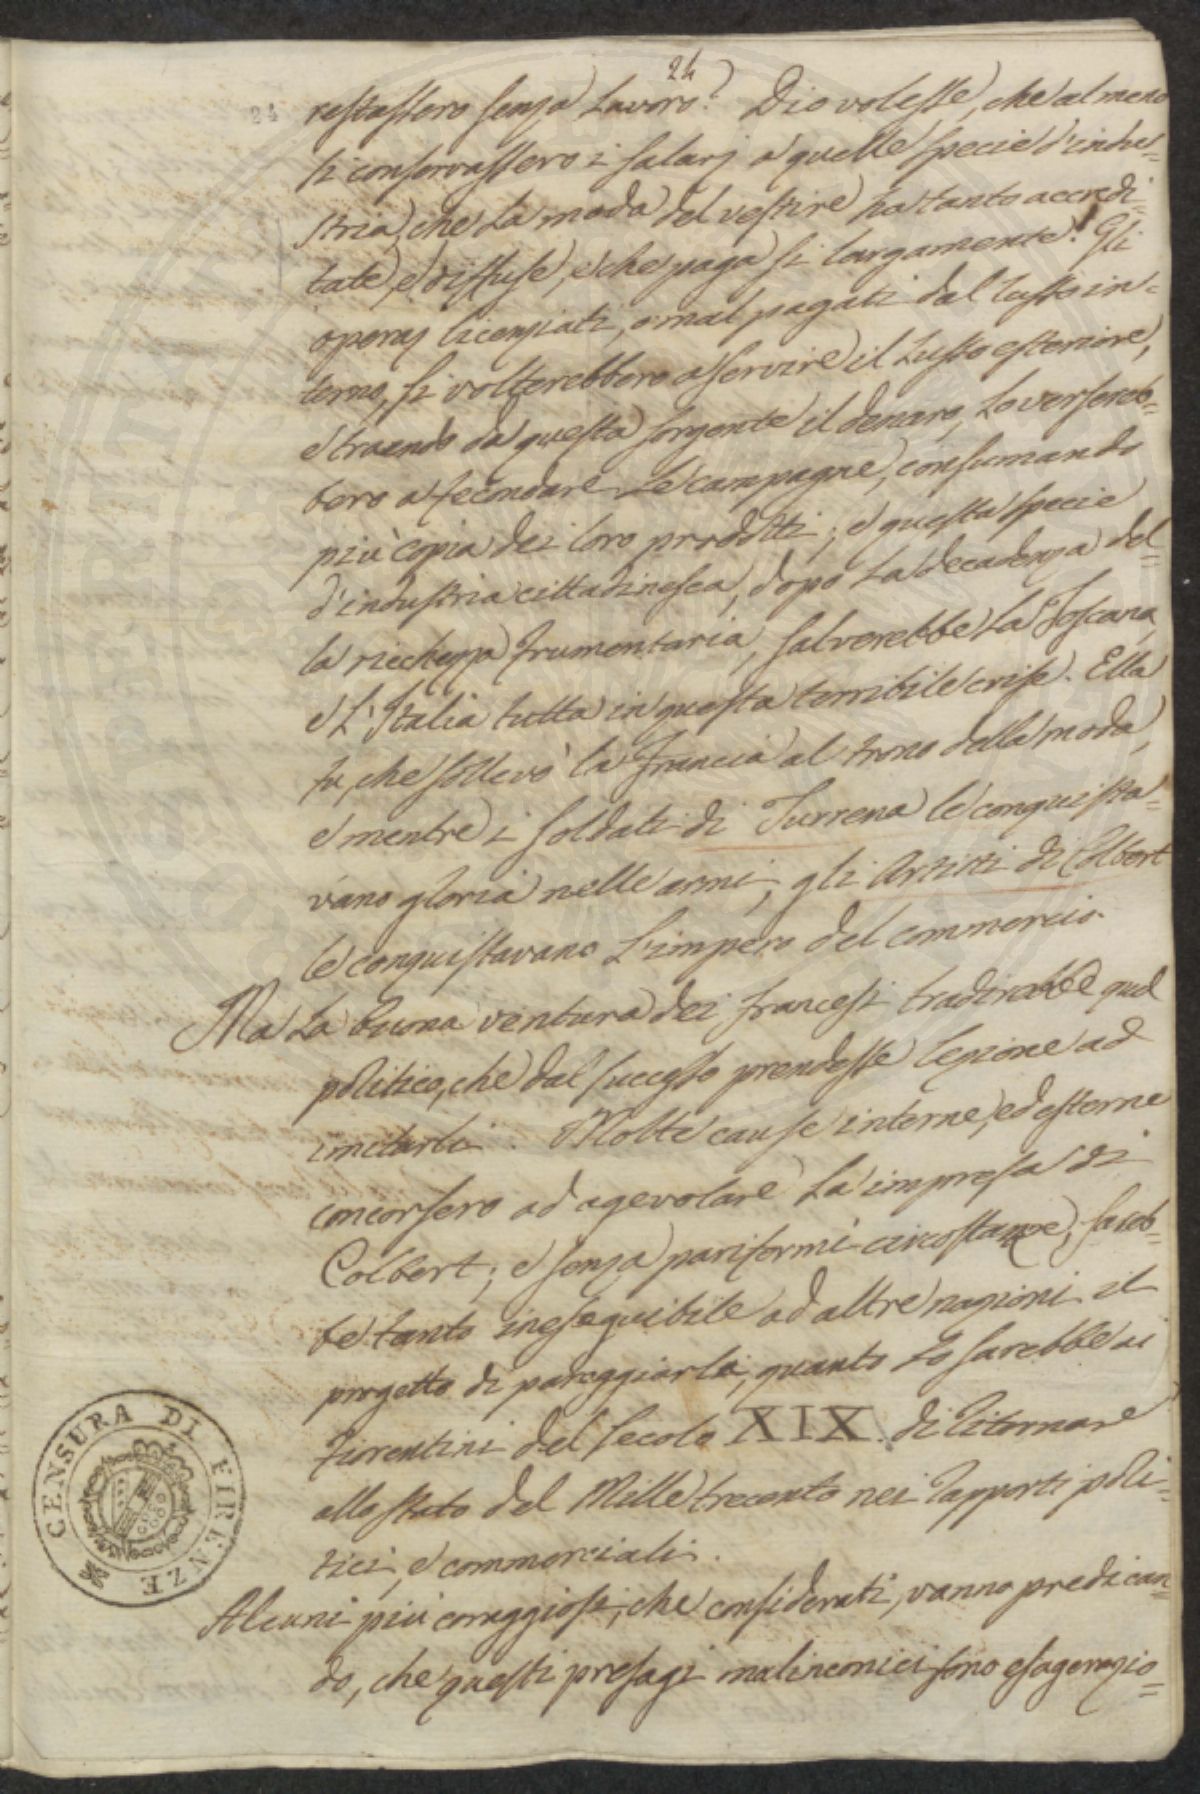 24
24
restassero senza lavoro? Dio volesse, che almeno
si conservassero i salarj a quelle specie d'indu=
stria, che la moda del vestire ha tanto accredi=
tate, e diffuse, e che paga sì largamente! Gli
operaj licenziati, o mal pagati dal lusso in=
terno, si volterebbero a servire il lusso esteriore,
e traendo da questa sorgente il denaro, lo versereb=
bero a fecondare le campagne, consumando
più copia dei loro prodotti; e questa specie
d'industria cittadinesca, dopo la decadenza del=
la ricchezza frumentaria, salverebbe la Toscana,
e l'Italia tutta in questa terribile crise. Ella
fu, che sollevò la Francia al trono della moda,
e mentre i soldati di Turrena le conquista=
vano gloria nelle armi, gli Artisti di Colbert
le conquistavano l'impero del commercio.
Ma la buona ventura dei francesi tradirebbe quel
politico, che dal successo prendesse lezione ad
imitarli. Molte cause interne, ed esterne
concorsero ad agevolare la impresa di
Colbert; e senza pariformi circostanze, sareb=
be tanto ineseguibile ad altre nazioni il
progetto di pareggiarla, quanto lo sarebbe ai
Fiorentini del secolo XIX. di ritornare
allo stato del Mille trecento nei rapporti poli=
tici, e commerciali.
Alcuni più coraggiosi, che considerati, vanno predican=
do, che questi presagi malinconici sono esagerazio=
CENSURA DI FIRENZE